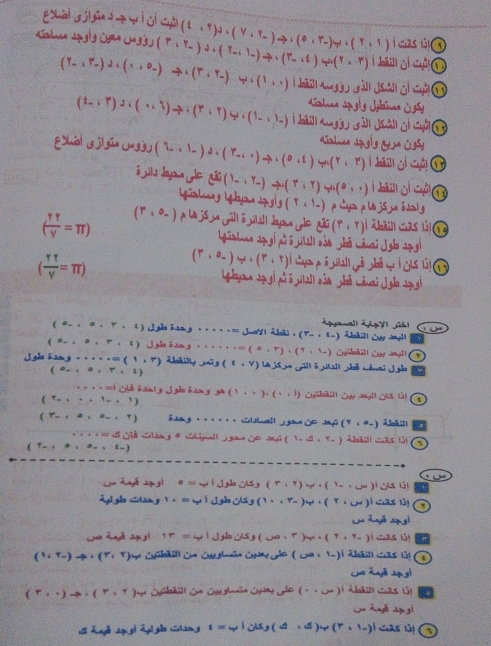 ٩ إذا كانت أ ( ١ ، ٢ ) ، ب( -٣ ، ٥ ) ، جـ ( -٢ ، ٧ ) ، د ( ٢ ، ٤ ) اثبت أن أ ب جـ د متوازى أضلاع
١٠ إثبت أن النقط أ ( ٣ ، ٢ )ب ( ٤ ، -٣ ) ، جـ ( -١ ، -٢ ) ، د ( -٢ ، ٣ ) رؤوس معين وأوجد مساحته
١١ إثبت أن الشكل الذى رؤوسه النقط أ ( ١ ، ٠ ) ، ب ( -٢ ، ٣ ) ، جـ ( -٥ ، ٠ ) ، د ( -٣ ، -٢ )
يكون مستطيل وأوجد مساحته
١٢ إثبت أن الشكل الذى رؤوسه النقط أ ( -١ ، -١ ) ، ب ( ٢ ، ٣ ) ، جـ ( ٦ ، ٠ ) ، د ( ٣ ، -٤ )
يكون مربع وأوجد مساحته
١٣ إثبت أن النقط أ ( ٣ ، ٢ )،ب ( ٤ ، ٥ ) ، جـ ( ٠ ، -٣ ) ، د ( -١ ، -٦ ) رؤوس متوازى أضلاع
١٤ إثبت أن النقط أ ( ٥ ، ٠ )،ب ( ٢ ، ٣ )،جـ ( -٢ ، -١ ) تقع على محيط دائرة
واحدة مركزها م حيث م ( -١ ، ٢ ) وأوجد محيطها ومساحتها
١٥ إذا كانت النقطة أ( ٢ ، ٣ ) تقع على محيط الدائرة التى مركزها م ( -٥ ، ٣ )
أوجد طول نصف قطر هذه الدائرة ثم أوجد مساحتها (π = ٢٢/٧)
١٦ إذا كان أ ب قطر في الدائرة م حيث أ( ٢ ، ٣ ) ، ب ( -٥ ، ٣ )
أوجد طول نصف قطر هذه الدائرة ثم أوجد محيطها (π = ٢٢/٧)
س ١ اختر الإجابة الصحيحة
١ البعد بين النقطة ( -٤ ، -٣ ) ، نقطة الاصل = ..... وحدة طول ( ٤ ، ٣ ، ٥ ، -٥ )
٢ البعد بين النقطتين ( -١ ، ٢ ) ، ( ٣ ، ٥ ) = ...... وحدة طول ( ٤ ، ٣ ، ٥ ، -٥ )
٣ طول نصف قطر الدائرة التى مركزها ( ٧ ، ٤ ) وتمر بالنقطة ( ٣ ، ١ ) = ..... وحدة طول
( ٤ ، ٣ ، ٥ ، -٥ )
٤ إذا كان البعد بين النقطتين ( أ ، ٠ ) ، ( ٠ ، ١ ) هو وحدة طول واحدة فإن أ = ....
( ١ ، -١ ، ٠ ، -٢ )
٥ النقطة ( -٥ ، ٢ ) تبعد عن محور الصادات ...... وحدة ( ٢ ، -٥ ، ٥ ، -٣ )
٦ إذا كانت النقطة ( -٢ ، ك -١ ) تبعد عن محور السينات ٥ وحدات فإن ك = ....
( -٤ ، -٥ ، ٥ ، -٢ )
س ٢
١ إذا كان أ( س ، -١ ) ، ب ( ٢ ، ٣ ) وكان طول أ ب = ٥ أوجد قيمة س
٢ إذا كانت أ ( س ، ٢ ) ، ب( -٣ ، ١٠ ) وكان طول أ ب = ١٠ وحدات طولية
أوجد قيمة س
٣ إذا كانت أ ( -٢ ، ٢ ) ، ب( ٣ ، ص ) وكان طول أ ب = ١٣ أوجد قيمة ص
٤ إذا كانت النقطة أ( -١ ، ص ) على بعدين متساويين من النقطتين ب( ٢ ، ٣ ) ، جـ ( -٢ ، ١ )
أوجد قيمة ص
٥ إذا كانت النقطة أ ( س ، ٠ ) على بعدين متساويين من النقطتين ب( ٢ ، ٣ ) ، جـ ( ٠ ، ٣ )
أوجد قيمة س
٦ إذا كانت أ ( -١ ، ٣ ) ب( ك ، ك ) وكان أ ب = ٤ وحدات طولية أوجد قيمة ك